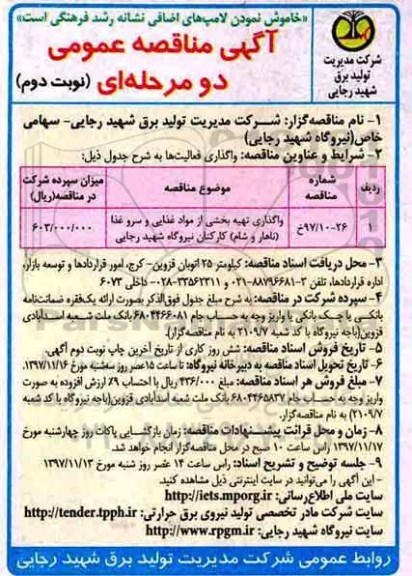 «خاموش نمودن لامپ‌های اضافی نشانه رشد فرهنگی است»
شرکت مدیریت
تولید برق
شهید رجایی
آگهی مناقصه عمومی
دو مرحله‌ای (نوبت دوم)
۱- نام مناقصه‌گزار: شرکت مدیریت تولید برق شهید رجایی- سهامی
خاص(نیروگاه شهید رجایی)
۲- شرایط و عناوین مناقصه: واگذاری فعالیت‌ها به شرح جدول ذیل:
ردیف شماره مناقصه موضوع مناقصه میزان سپرده شرکت در مناقصه(ریال)
۱ ۹۷/۱۰-۲۶خ واگذاری تهیه بخشی از مواد غذایی و سرو غذا (ناهار و شام) کارکنان نیروگاه شهید رجایی ۶۰۳/۰۰۰/۰۰۰
۳- محل دریافت اسناد مناقصه: کیلومتر ۲۵ اتوبان قزوین - کرج، امور قراردادها و توسعه بازار،
اداره قراردادها، تلفن ۲-۸۸۷۹۶۶۸۱-۰۲۱ و ۳۳۵۶۲۳۱۱-۰۲۸ داخلی ۶۰۷۳
۴- سپرده شرکت در مناقصه: به شرح مبلغ جدول فوق‌الذکر بصورت ارائه یک‌فقره ضمانت‌نامه
بانکی یا چک بانکی یا واریز وجه به حساب جام ۶۸۰۴۴۶۶۰۸۱ بانک ملت شعبه اسدآبادی
قزوین(باجه نیروگاه با کد شعبه ۲۱۰۹/۷ به نام مناقصه‌گزار).
۵- تاریخ فروش اسناد مناقصه: شش روز کاری از تاریخ آخرین چاپ نوبت دوم آگهی.
۶- تاریخ تحویل اسناد مناقصه به دبیرخانه نیروگاه: تا ساعت ۱۵عصر روز سه‌شنبه مورخ ۱۳۹۷/۱۱/۱۶.
۷- مبلغ فروش هر اسناد مناقصه: مبلغ ۴۳۶/۰۰۰ ریال با احتساب ۹٪ ارزش افزوده به صورت
واریز وجه به حساب جام ۶۸۰۴۴۶۵۸۳۷ بانک ملت شعبه اسدآبادی قزوین(باجه نیروگاه با کد شعبه
۲۱۰۹/۷) به نام مناقصه‌گزار.
۸- زمان و محل قرائت پیشنهادات مناقصه: زمان بازگشایی پاکات روز چهارشنبه مورخ
۱۳۹۷/۱۱/۱۷ راس ساعت ۱۰ صبح در محل مناقصه‌گزار انجام خواهد شد.
۹- جلسه توضیح و تشریح اسناد: راس ساعت ۱۴ عصر روز شنبه مورخ ۱۳۹۷/۱۱/۱۳
- این آگهی را می‌توانید در سایت اینترنتی ذیل مشاهده کنید.
سایت ملی اطلاع‌رسانی: http://iets.mporg.ir
سایت شرکت مادر تخصصی تولید نیروی برق حرارتی: http://tender.tpph.ir
سایت نیروگاه شهید رجایی: http://www.rpgm.ir
روابط عمومی شرکت مدیریت تولید برق شهید رجایی